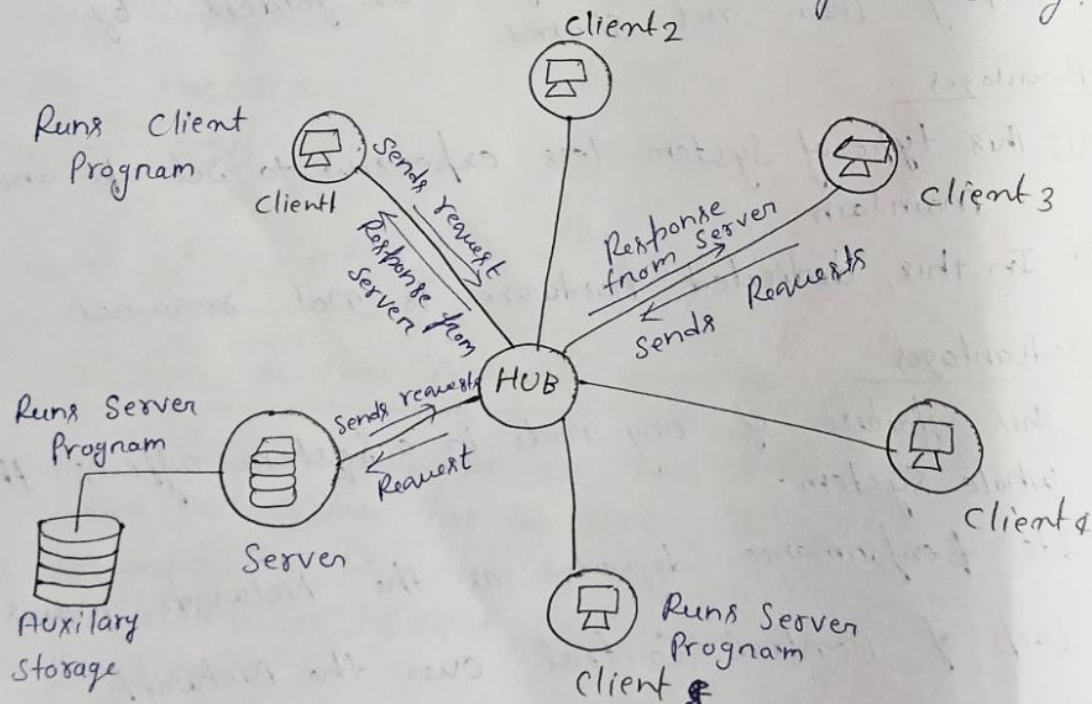 Client 2
Runs Client
Program
Client1
Sends request
Response from
Server
Response
from Server
Sends Requests
Client 3
HUB
Runs Server
Program
Sends requests
Request
Server
Auxilary
Storage
Client 4
Runs Server
Program
Client